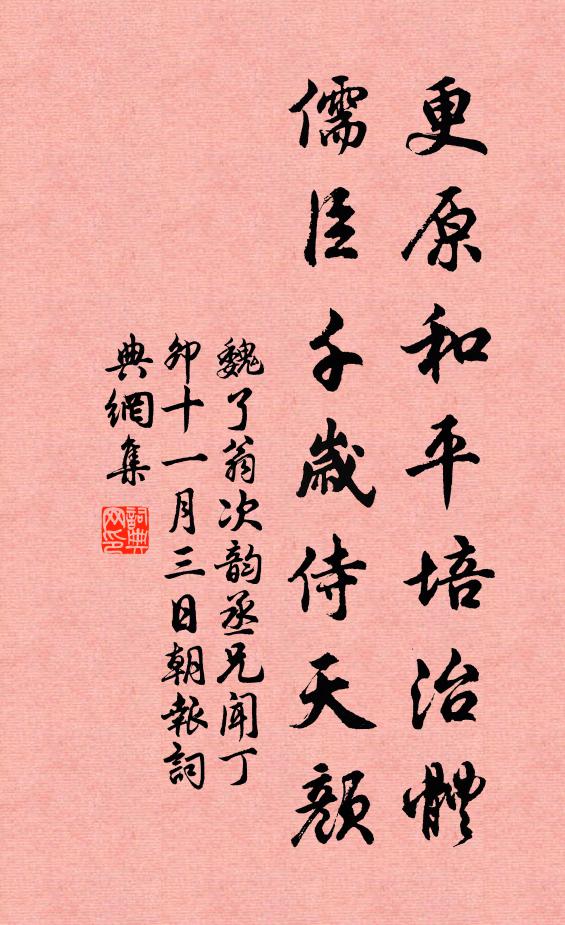 更原和平培治體
儒臣千歲侍天顏
魏了翁次韵丞兄聞丁
卯十一月三日朝報詞
典網集
詞典網印